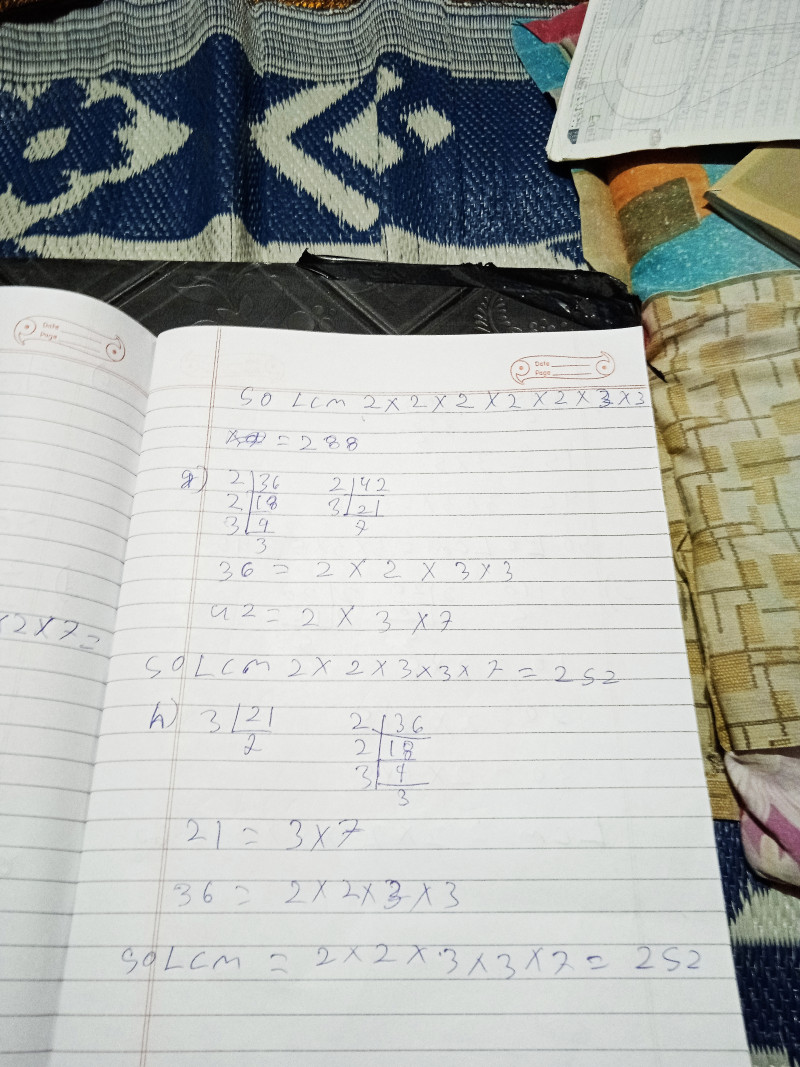 Date
Page
Date
Page
SO LCM 2×2×2×2×2×3×3
= 288
g) 2|36 2|42
2|18 3|21
3|9 7
3
36 = 2 × 2 × 3×3
42 = 2 × 3 ×7
×2×7=
SO LCM 2×2×3×3×7 = 252
h) 3|21 2|36
2 2|18
3|9
3
21 = 3×7
36 = 2×2×3×3
SO LCM = 2×2×3×3×7 = 252